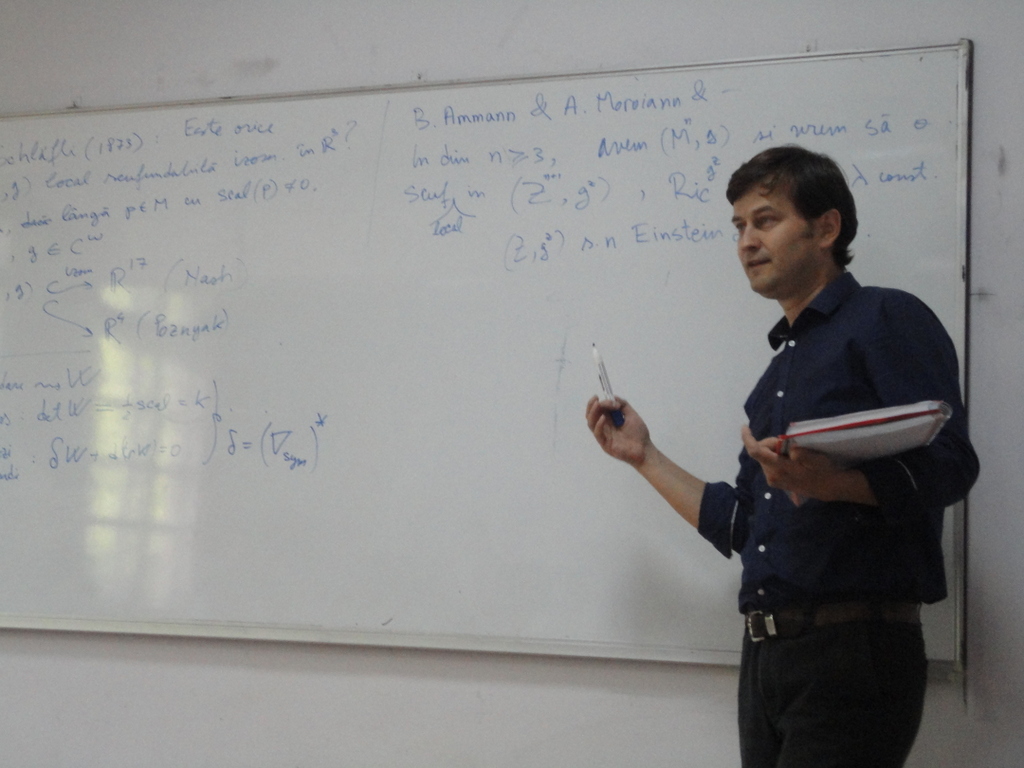 Schläfli (1873) : Este orice
, g) local scufundabilă izom. în R³?
, dacă lângă p∈M cu scal(p) ≠ 0.
, g ∈ C^ω
, g) izom R¹⁷ (Nash)
R⁴ (Poznyak)
W
det W = ½ scal = K
: δW + d(trW) = 0 δ = (∇sym)*
B. Ammann & A. Moroianu &
In dim n ≥ 3, avem (Mⁿ, g) si vrem să o
scuf in (Zⁿ⁺¹, g^Z) , Ric^g^Z λ const.
local
(Z, g^Z) s.n Einstein